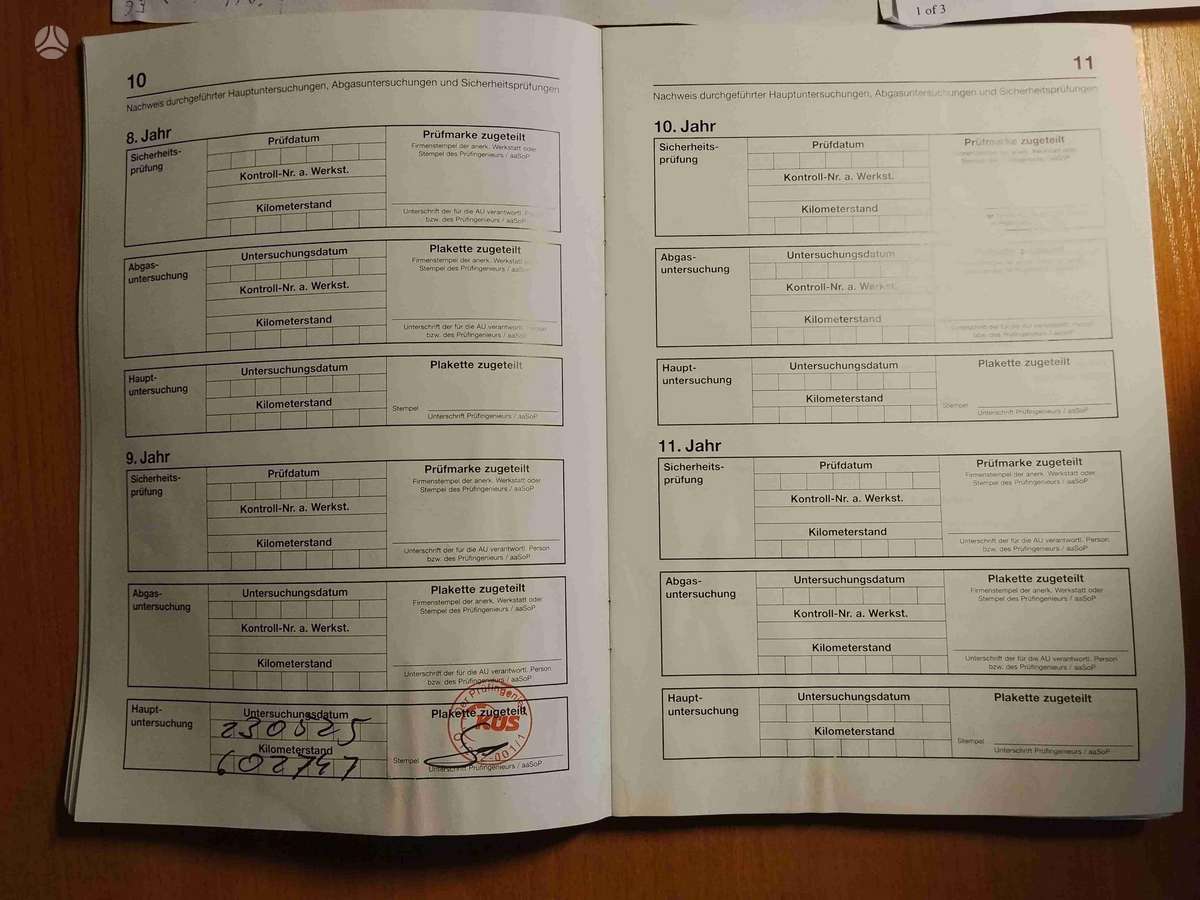 1 of 3
10
Nachweis durchgeführter Hauptuntersuchungen, Abgasuntersuchungen und Sicherheitsprüfungen
8. Jahr
Sicherheits-
prüfung
Prüfdatum
Kontroll-Nr. a. Werkst.
Kilometerstand
Prüfmarke zugeteilt
Firmenstempel der anerk. Werkstatt oder
Stempel des Prüfingenieurs / aaSoP
Unterschrift der für die AU verantwortl. Person
bzw. des Prüfingenieurs / aaSoP
Abgas-
untersuchung
Untersuchungsdatum
Kontroll-Nr. a. Werkst.
Kilometerstand
Plakette zugeteilt
Firmenstempel der anerk. Werkstatt oder
Stempel des Prüfingenieurs / aaSoP
Unterschrift der für die AU verantwortl. Person
bzw. des Prüfingenieurs / aaSoP
Haupt-
untersuchung
Untersuchungsdatum
Kilometerstand
Plakette zugeteilt
Stempel
Unterschrift Prüfingenieurs / aaSoP
9. Jahr
Sicherheits-
prüfung
Prüfdatum
Kontroll-Nr. a. Werkst.
Kilometerstand
Prüfmarke zugeteilt
Firmenstempel der anerk. Werkstatt oder
Stempel des Prüfingenieurs / aaSoP
Unterschrift der für die AU verantwortl. Person
bzw. des Prüfingenieurs / aaSoP
Abgas-
untersuchung
Untersuchungsdatum
Kontroll-Nr. a. Werkst.
Kilometerstand
Plakette zugeteilt
Firmenstempel der anerk. Werkstatt oder
Stempel des Prüfingenieurs / aaSoP
Unterschrift der für die AU verantwortl. Person
bzw. des Prüfingenieurs / aaSoP
Haupt-
untersuchung
Untersuchungsdatum
230525
Kilometerstand
602747
Plakette zugeteilt
KÜS
Stempel
Unterschrift Prüfingenieurs / aaSoP
11
Nachweis durchgeführter Hauptuntersuchungen, Abgasuntersuchungen und Sicherheitsprüfungen
10. Jahr
Sicherheits-
prüfung
Prüfdatum
Kontroll-Nr. a. Werkst.
Kilometerstand
Prüfmarke zugeteilt
Abgas-
untersuchung
Untersuchungsdatum
Kontroll-Nr. a. Werkst.
Kilometerstand
Unterschrift der für die AU verantwortl. Person
bzw. des Prüfingenieurs / aaSoP
Haupt-
untersuchung
Untersuchungsdatum
Kilometerstand
Plakette zugeteilt
Stempel
Unterschrift Prüfingenieurs / aaSoP
11. Jahr
Sicherheits-
prüfung
Prüfdatum
Kontroll-Nr. a. Werkst.
Kilometerstand
Prüfmarke zugeteilt
Firmenstempel der anerk. Werkstatt oder
Stempel des Prüfingenieurs / aaSoP
Unterschrift der für die AU verantwortl. Person
bzw. des Prüfingenieurs / aaSoP
Abgas-
untersuchung
Untersuchungsdatum
Kontroll-Nr. a. Werkst.
Kilometerstand
Plakette zugeteilt
Firmenstempel der anerk. Werkstatt oder
Stempel des Prüfingenieurs / aaSoP
Unterschrift der für die AU verantwortl. Person
bzw. des Prüfingenieurs / aaSoP
Haupt-
untersuchung
Untersuchungsdatum
Kilometerstand
Plakette zugeteilt
Stempel
Unterschrift Prüfingenieurs / aaSoP